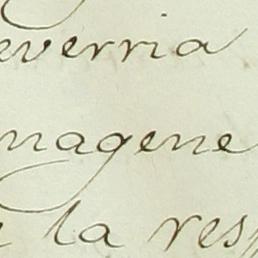 everria
magene
la res